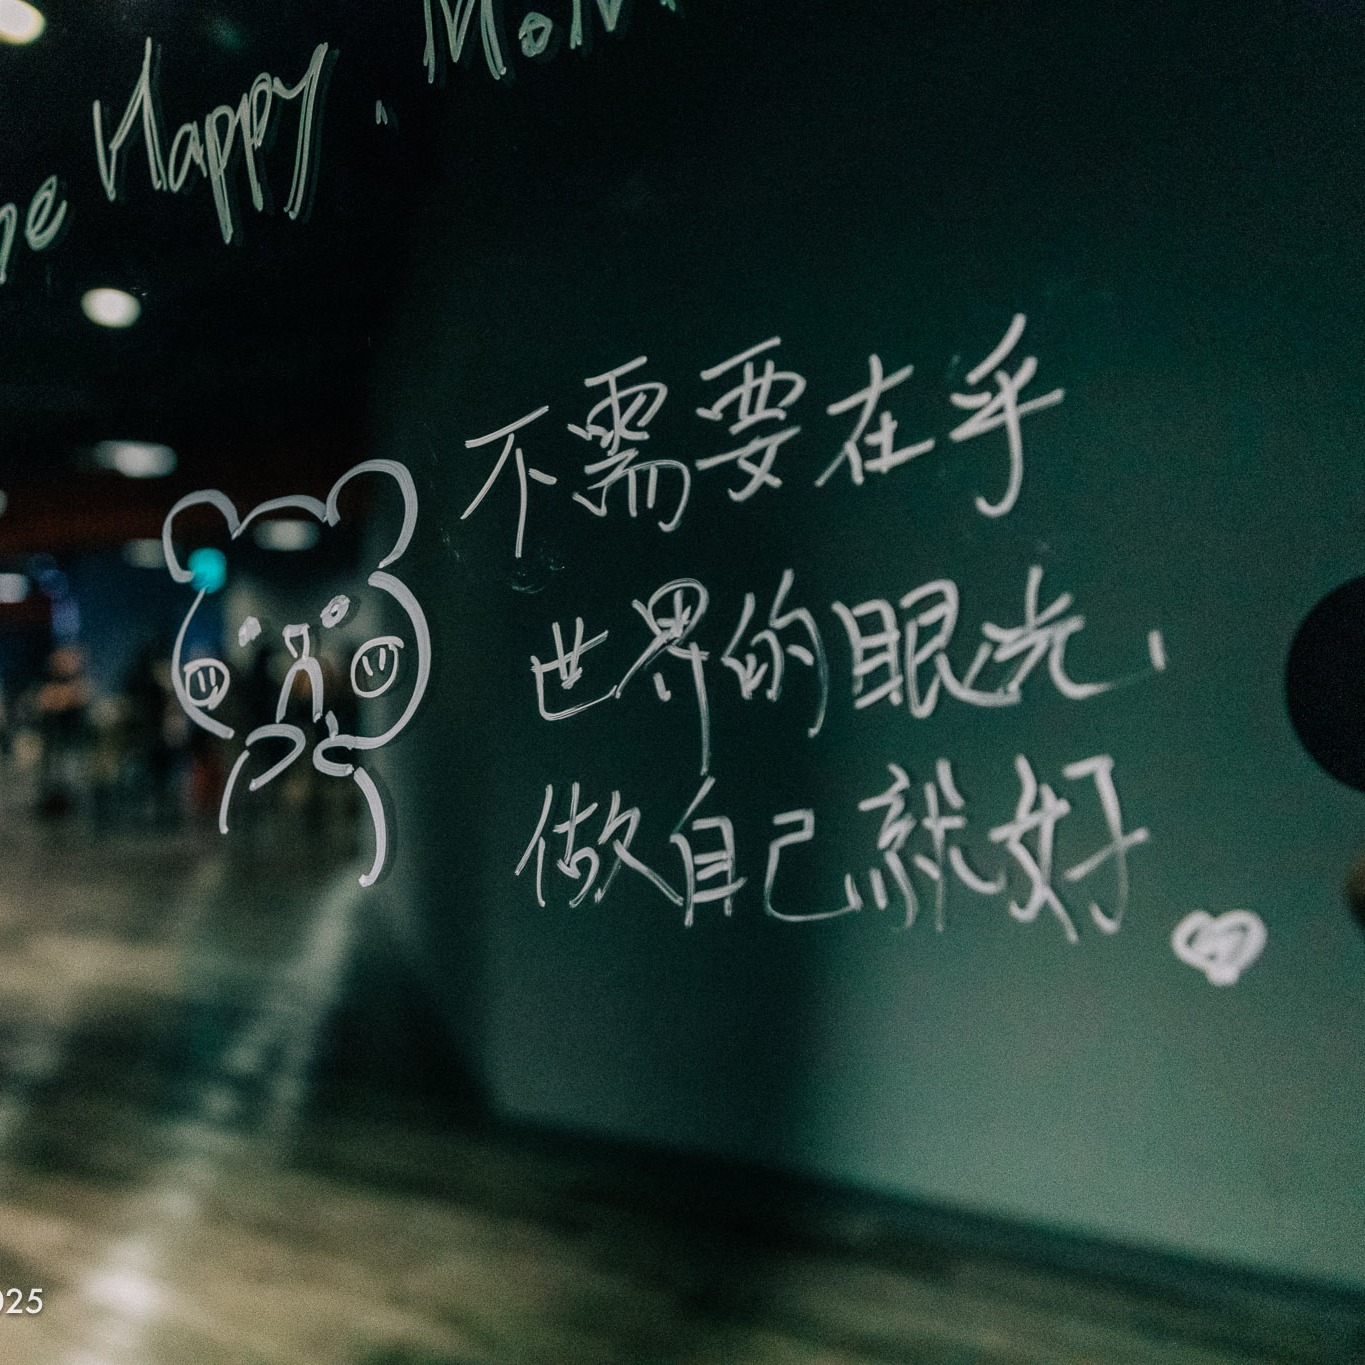 Happy.
不需要在乎
世界的眼光,
做自己就好